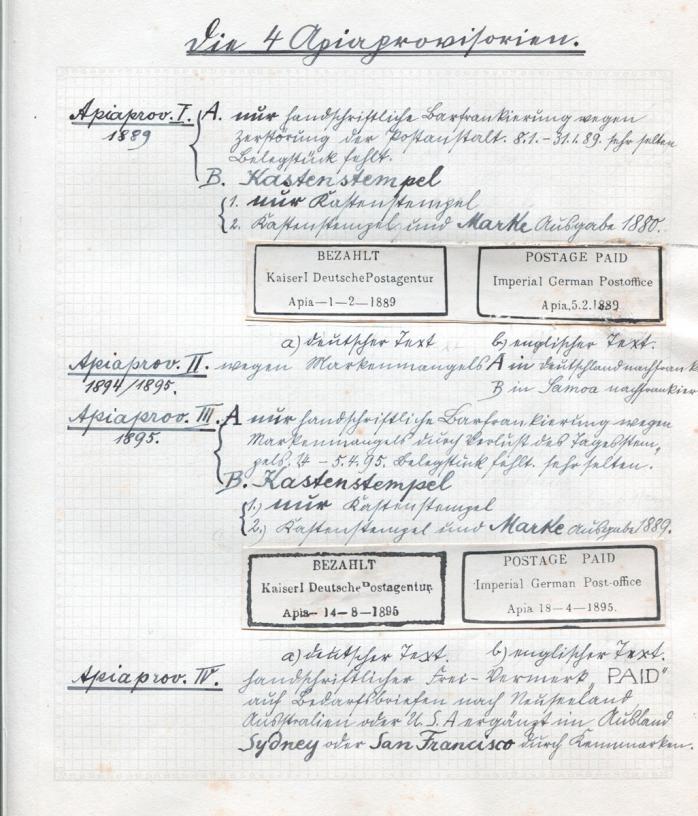 Die 4 Apiaprovisorien.
Apiaprov. I. A. nur handschriftliche Barfrankierung wegen
1889 Zerstörung der Postanstalt. 8.1.-31.1.89. sehr selten
Belegstück fehlt.
B. Kastenstempel
1. nur Kastenstempel
2. Kastenstempel und Marke Ausgabe 1880.
BEZAHLT
Kaiserl Deutsche Postagentur
Apia—1—2—1889
POSTAGE PAID
Imperial German Postoffice
Apia,5.2.1889.
a) deutscher Text b) englischer Text.
Apiaprov. II. wegen Markenmangels A in Deutschland nachfrank
1894/1895. B in Samoa nachfrankier
Apiaprov. III. A nur handschriftliche Barfrankierung wegen
1895. Markenmangels durch Verlust des Tagesstem„
pels. - 5.4.95. Belegstück fehlt. sehr selten.
B. Kastenstempel
1.) nur Kastenstempel
2.) Kastenstempel und Marke Ausgabe 1889.
BEZAHLT
Kaiserl Deutsche Postagentur
Apia— 14—8—1895
POSTAGE PAID
Imperial German Post-office
Apia 18—4—1895.
a) deutscher Text. b) englischer Text.
Apiaprov. IV. handschriftlicher Frei-Vermerk „PAID"
auf Bedarfsbriefen nach Neuseeland
Australien oder U.S.A ergänzt im Ausland
Sydney oder San Francisco durch Kennmarken.